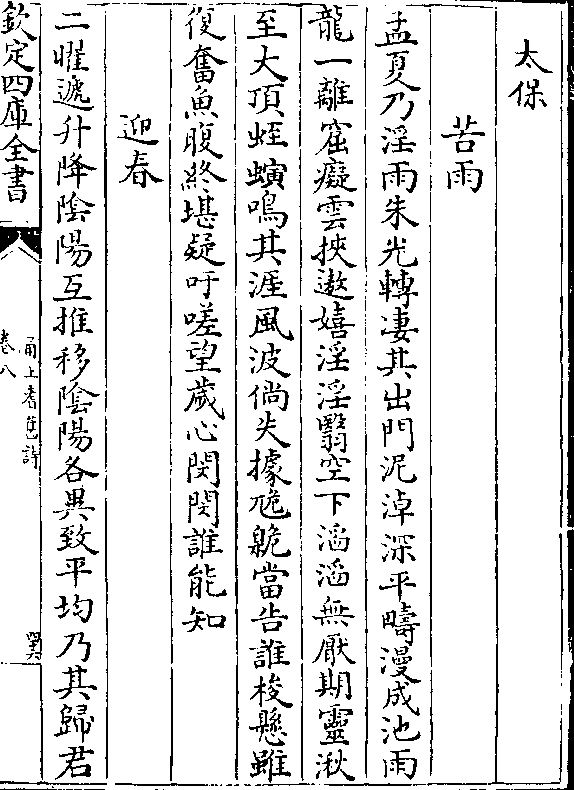 太保
苦雨
孟夏乃淫雨朱光轉凄其出門泥淖深平疇漫成池雨
龍一離窟癡雲挾遨嬉淫淫翳空下滔滔無厭期靈湫
至大頂蛭螾鳴其涯風波倘失據臲卼當告誰梭懸雖
復奮魚腹終堪疑吁嗟望歲心閔閔誰能知
迎春
二曜遞升降陰陽互推移陰陽各異致平均乃其歸君
欽定四庫全書
甬上耆舊詩
卷八